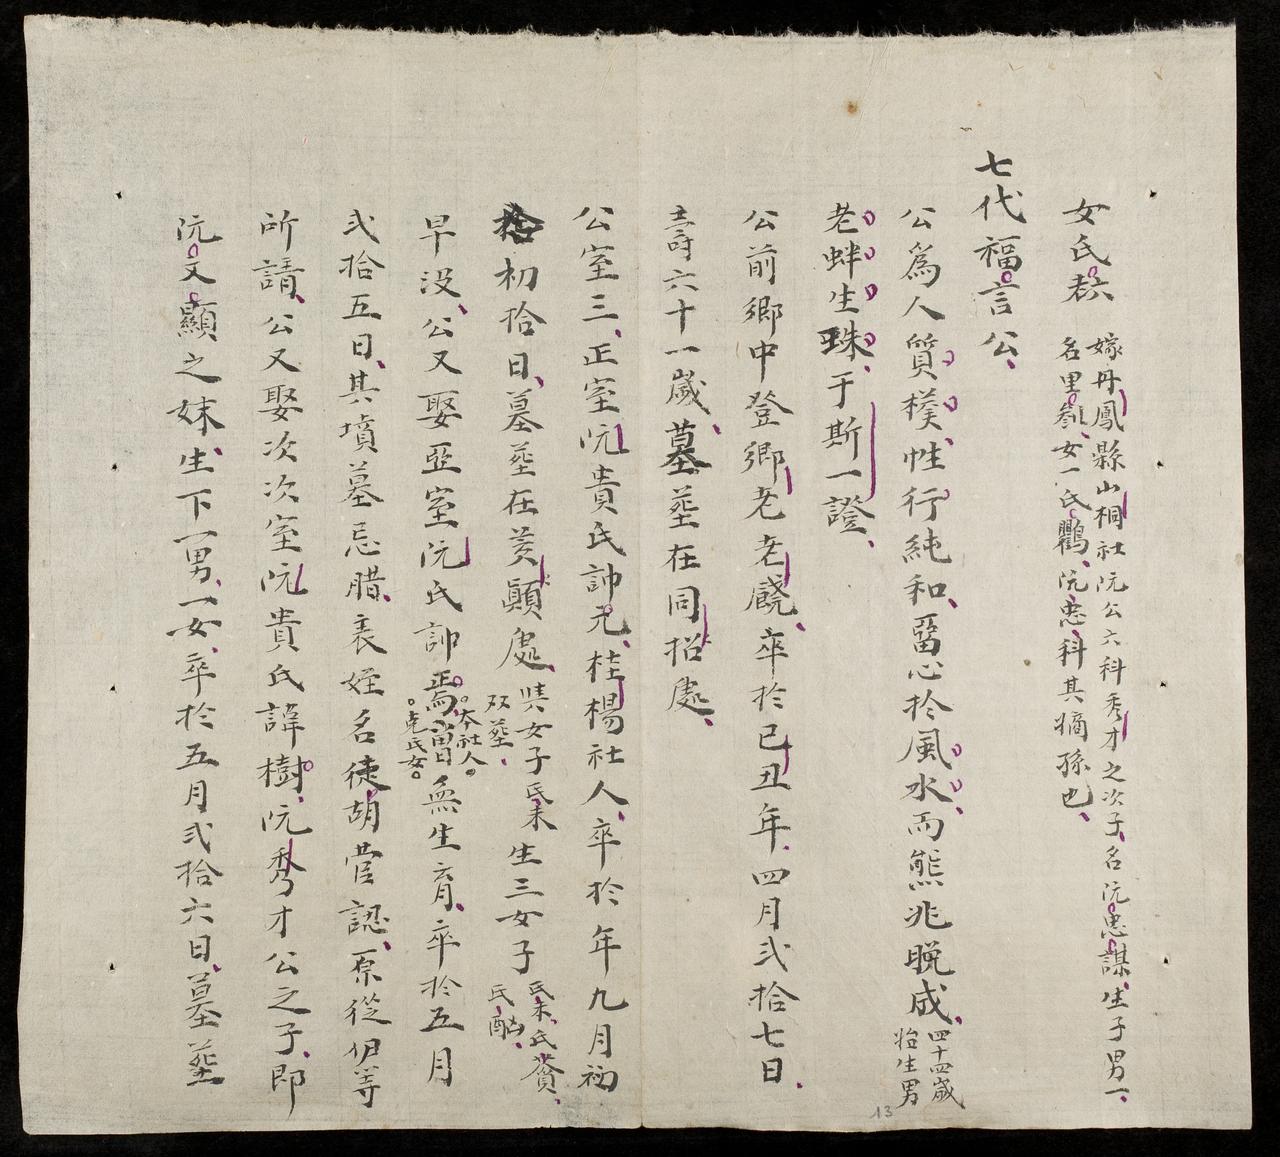 女氏
嫁丹鳳縣山桐社阮公六科秀才之次子名阮忠謀生子男一
名里 女一氏鸛阮忠科其嫡孫也
七代福言公
公爲人質樸性行純和畱心於風水而熊兆晚成
四十四歲
始生男
老蚌生珠于斯一證
公前鄉中登鄉老老饒卒於己丑年四月弍拾七日
壽六十一歲墓塟在同招處
公室三正室阮貴氏 元桂楊社人卒於年九月初
初拾日墓塟在 顛處
與女子氏未
双塟
生三女子
氏未氏
氏
早没公又娶亞室阮氏
本社人
氏女
無生育卒於五月
弍拾五日其墳墓忌腊表姪名徒胡營認原從伊等
所請公又娶次次室阮貴氏諱樹阮秀才公之子即
阮文顯之妹生下一男一女卒於五月弍拾六日墓塟
13